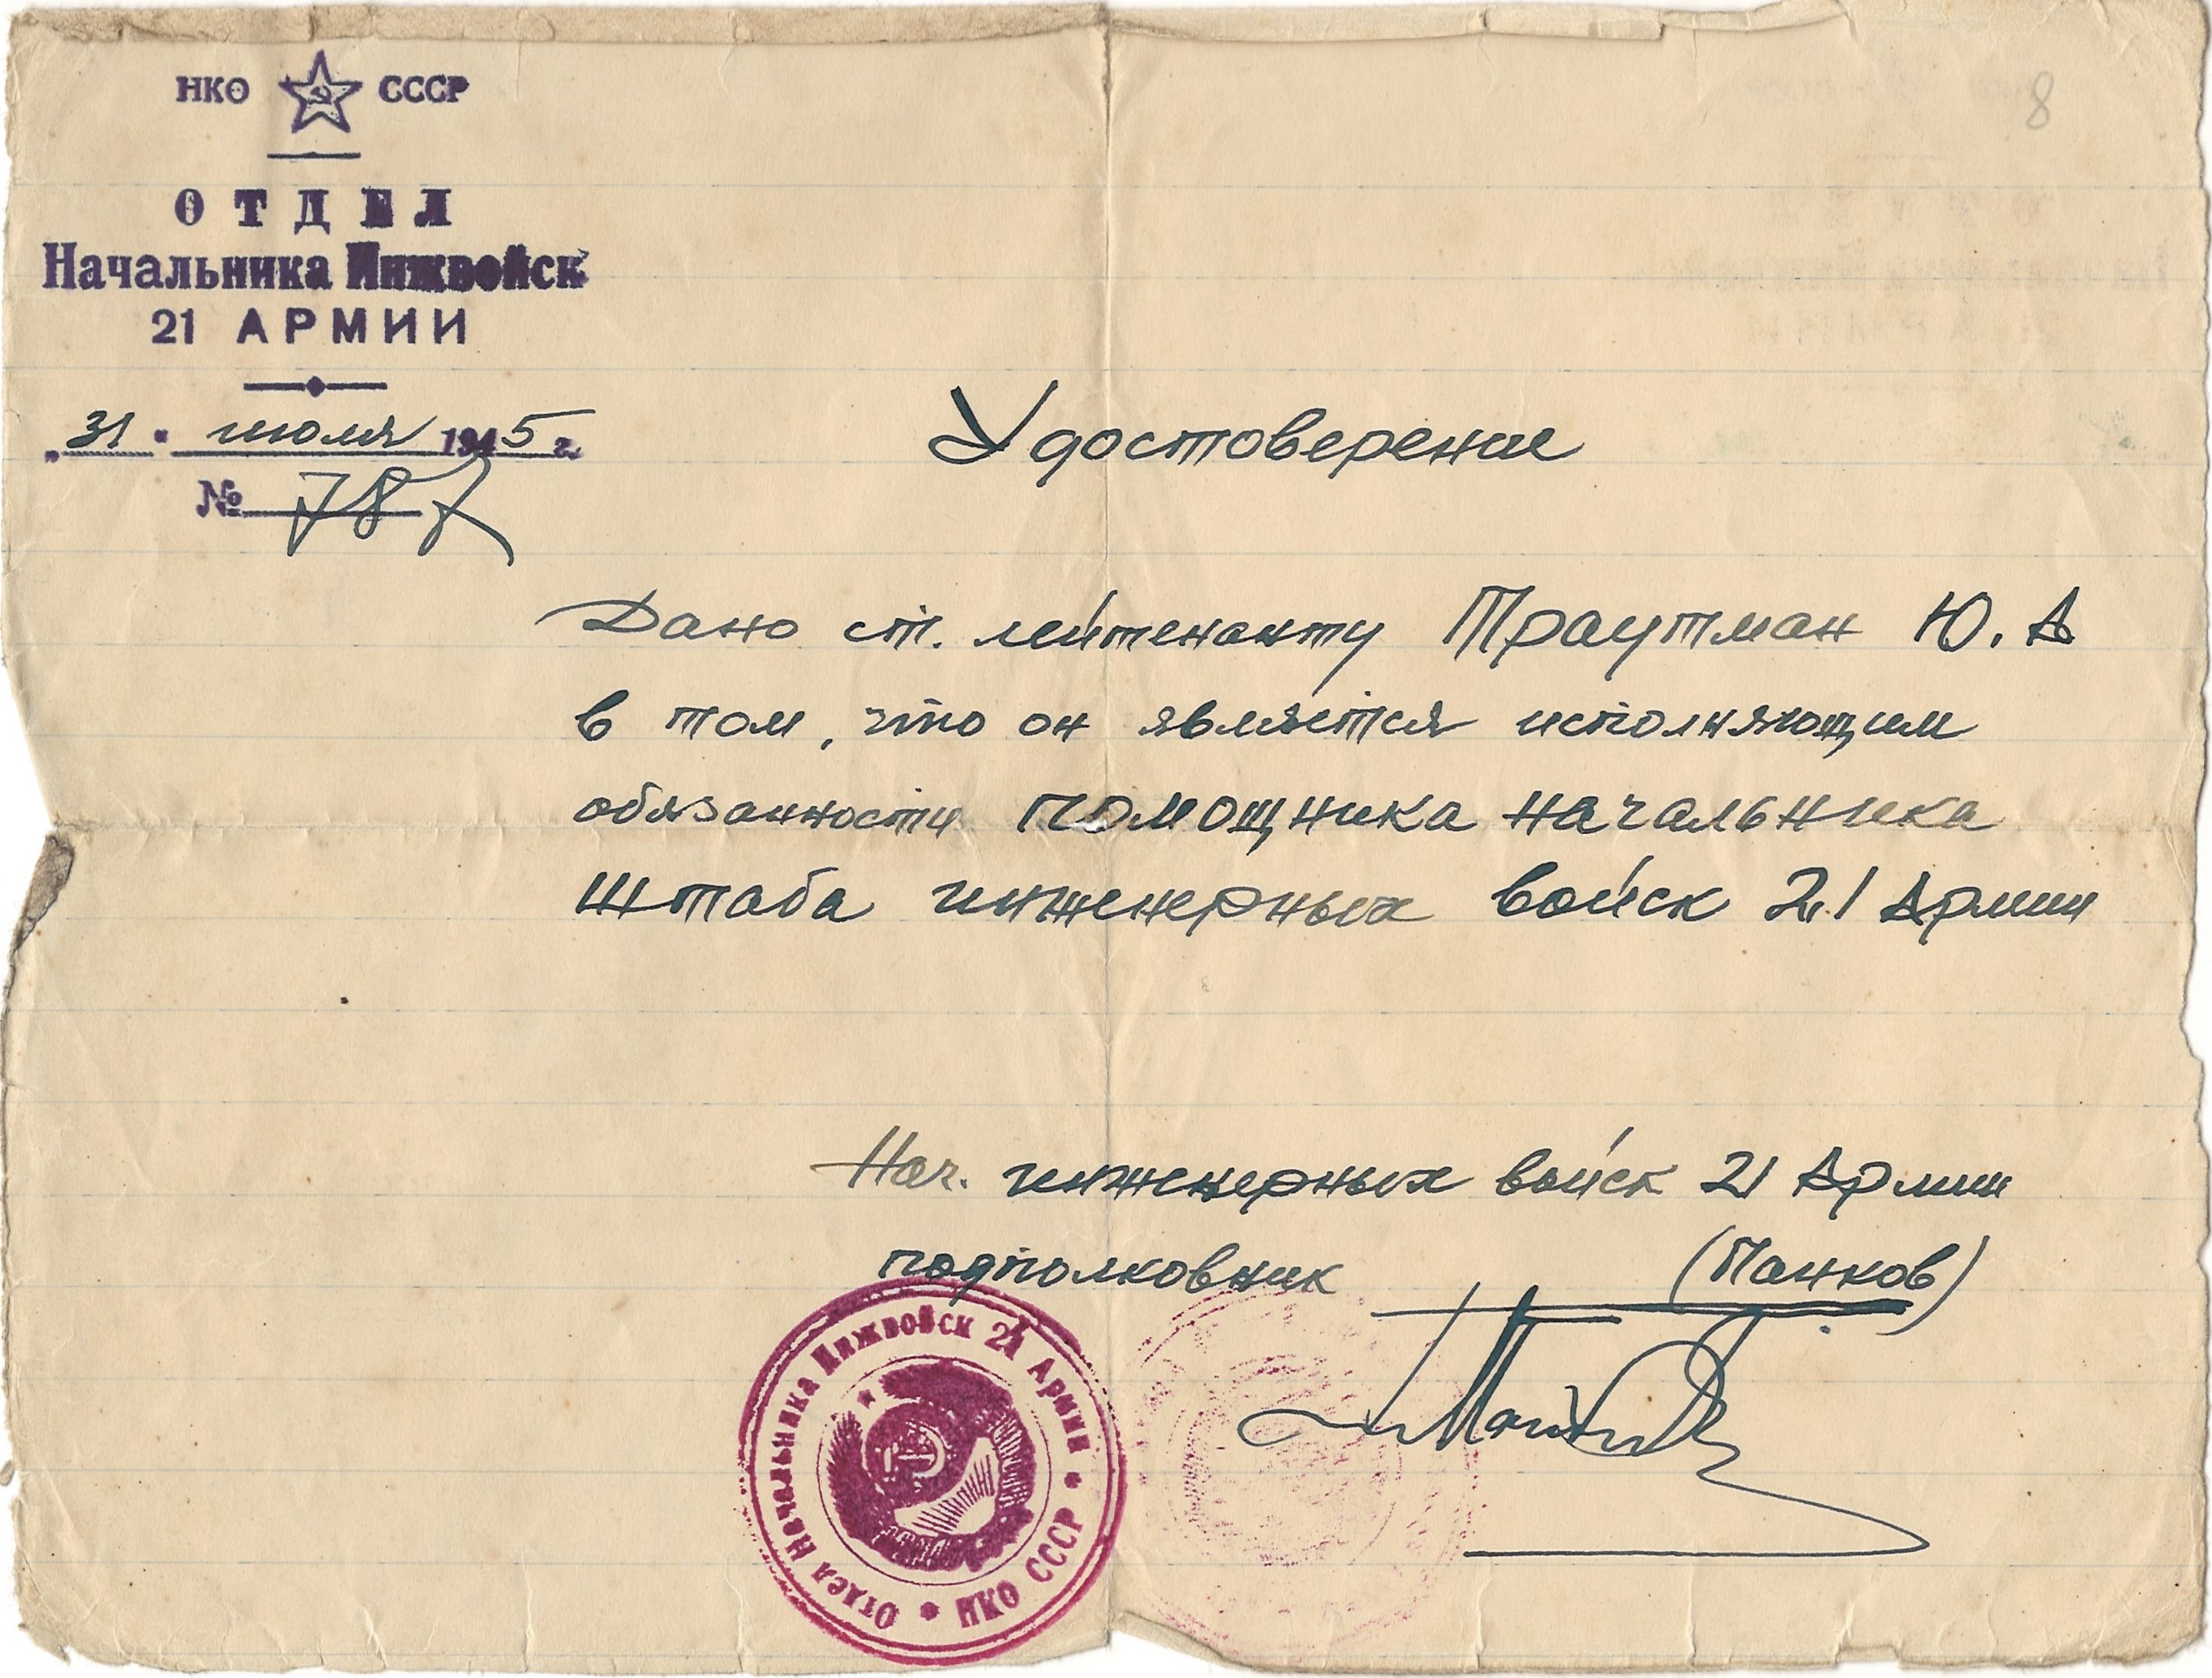 НКО СССР
ОТДЕЛ
Начальника Инжвойск
21 АРМИИ
„31“ июля 1945 г.
№ 787
8
Удостоверение
Дано ст. лейтенанту Траутман Ю. А
в том, что он является исполняющим
обязанности помощника начальника
штаба инженерных войск 21 Армии
Нач. инженерных войск 21 Армии
подполковник (Панков)
Отдел Начальника Инжвойск 21 Армии * НКО СССР *